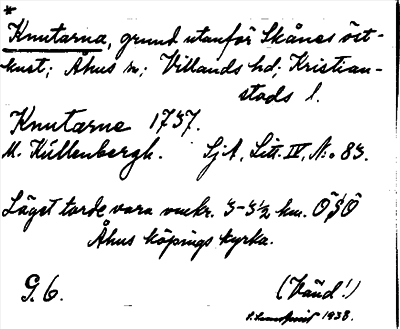 *
Knutarna, grund utanför Skånes öst-
kust; Åhus sn; Villands hd; Kristian-
stads l.
Knutarne 1757.
M. Kullenbergh. SjA, Litt. IV, No 83.
Läget torde vara omkr. 3-3½ km. ÖSÖ
Åhus köpings kyrka.
G. 6. (Vänd!)
1938.